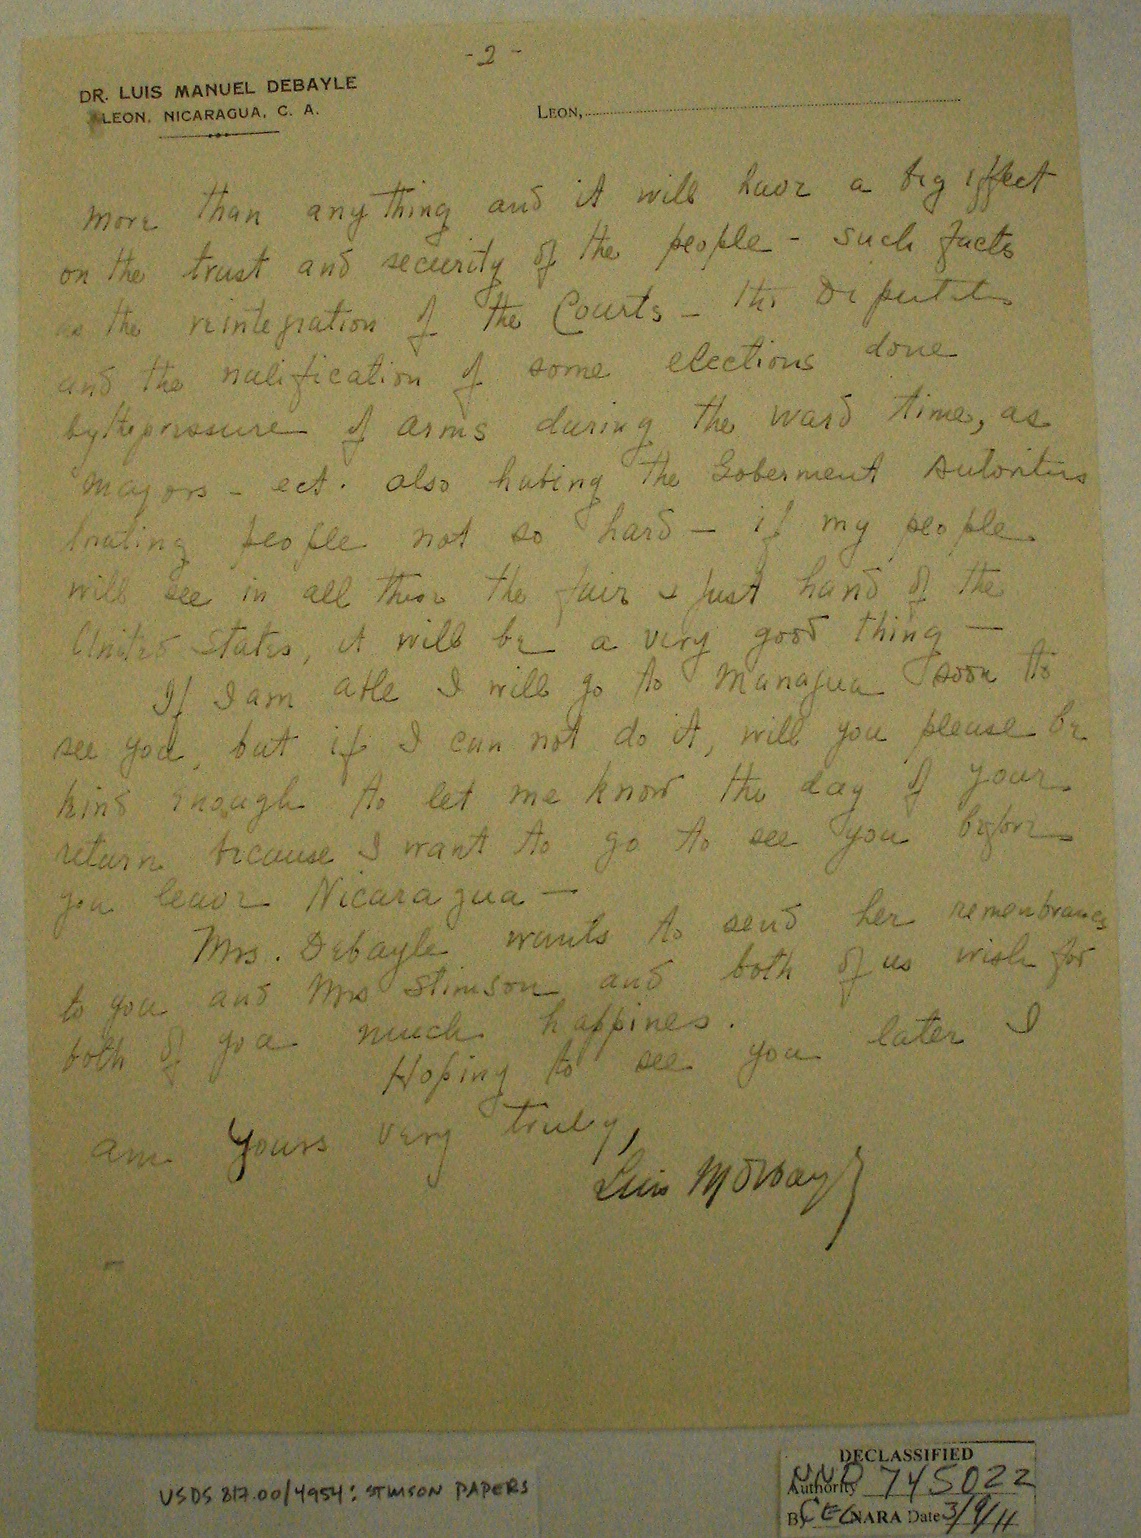 - 2 -
DR. LUIS MANUEL DEBAYLE
LEON, NICARAGUA, C. A.
LEON,
more than any thing and it will have a big effect
on the trust and security of the people - such facts
as the reintegration of the Courts - the Deputates
and the nulification of some elections done
by the pressure of arms during the ward time, as
mayors - ect. also habing the Goberment Autorities
treating people not so hard - if my people
will see in all these the fair & just hand of the
United States, it will be a very good thing -
If I am able I will go to Managua soon to
see you, but if I can not do it, will you please be
kind enough to let me know the day of your
return because I want to go to see you before
you leave Nicaragua -
Mrs. Debayle wants to send her remenbrances
to you and Mrs Stimson and both of us wish for
both of you much happines.
Hoping to see you later I
am yours very truly,
Luis M Debayle
USDS 817.00/4954: STIMSON PAPERS
DECLASSIFIED
Authority NND 745022
By CEG NARA Date 3/9/11